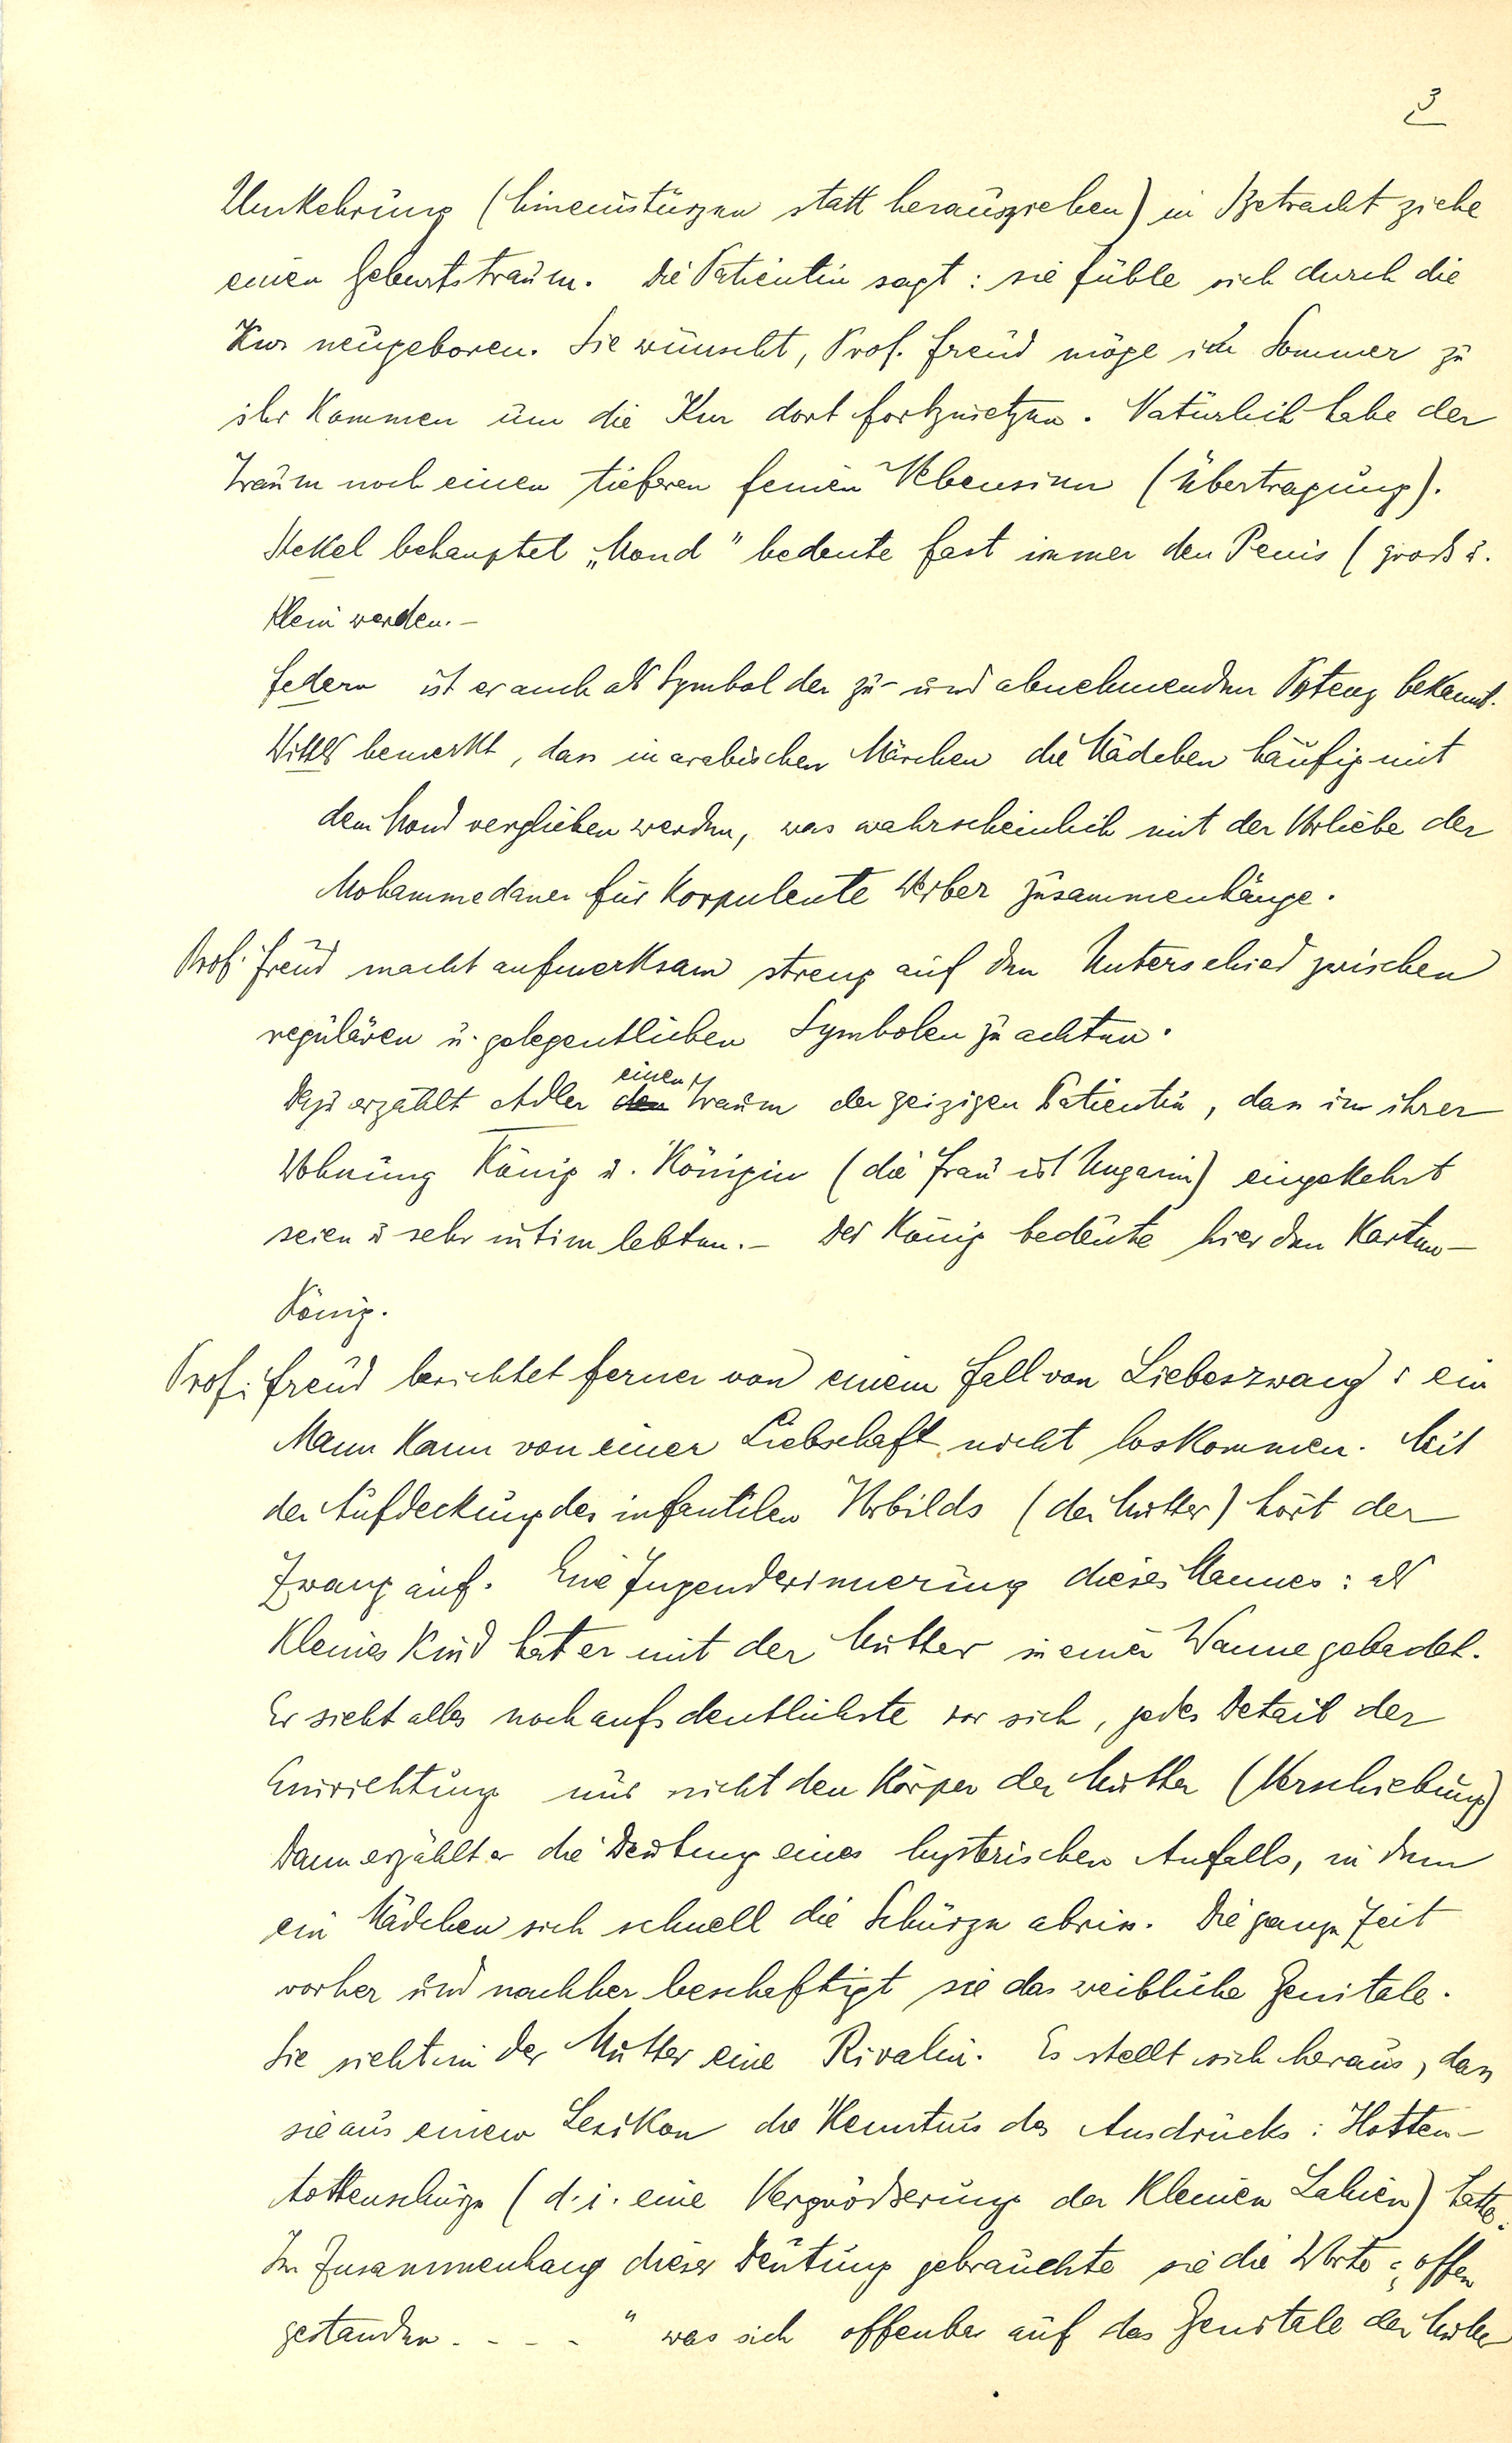 3
Umkehrung (hineinstürzen statt herausziehen) in Betracht ziehe
einen Geburtstraum. Die Patientin sagt: sie fühle sich durch die
Kur neugeboren. Sie wünscht, Prof. Freud möge im Sommer zu
ihr kommen um die Kur dort fortzusetzen. Natürlich habe der
Traum noch einen tieferen feinen Nebensinn (Übertragung).
Stekel behauptet „Mond" bedeute fast immer den Penis (groß u.
klein werden.-
Federn ist er auch als Symbol der zu- und abnehmenden Potenz bekannt.
Wittels bemerkt, dass in arabischen Märchen die Mädchen häufig mit
dem Mond verglichen werden, was wahrscheinlich mit der Vorliebe der
Mohammedaner für korpulente Weiber zusammenhänge.
Prof. Freud macht aufmerksam streng auf den Unterschied zwischen
regulären u. gelegentlichen Symbolen zu achten.
einen
Dazu erzählt Adler den Traum der geizigen Patientin, dass in ihrer
Wohnung König u. Königin (die Frau ist Ungarin) eingekehrt
seien u sehr intim lebten.- Der König bedeute hier den Karten-
König.
Prof. Freud berichtet ferner von einem Fall von Liebeszwang: ein
Mann kann von einer Liebschaft nicht loskommen. Mit
der Aufdeckung des infantilen Vorbilds (der Mutter) hört der
Zwang auf. Eine Jugenderinnerung dieses Mannes: als
kleines Kind hat er mit der Mutter in einer Wanne gebadet.
Er sieht alles noch aufs deutlichste vor sich, jedes Detail der
Einrichtung nur nicht den Körper der Mutter (Verschiebung)
Dann erzählt er die Deutung eines hysterischen Anfalls, in dem
ein Mädchen sich schnell die Schürze abriss. Die ganze Zeit
vorher und nachher beschäftigt sie das weibliche Genitale.
Sie sieht in der Mutter eine Rivalin. Es stellt sich heraus, dass
sie aus einem Lexikon die Kenntnis des Ausdrucks: Hotten-
tottenschürze (d.i. eine Vergrößerung der kleinen Labien) hatte.
Im Zusammenhang dieser Deutung gebrauchte sie die Worte: „offen
gestanden. - - - " was sich offenbar auf das Genitale der Mutter